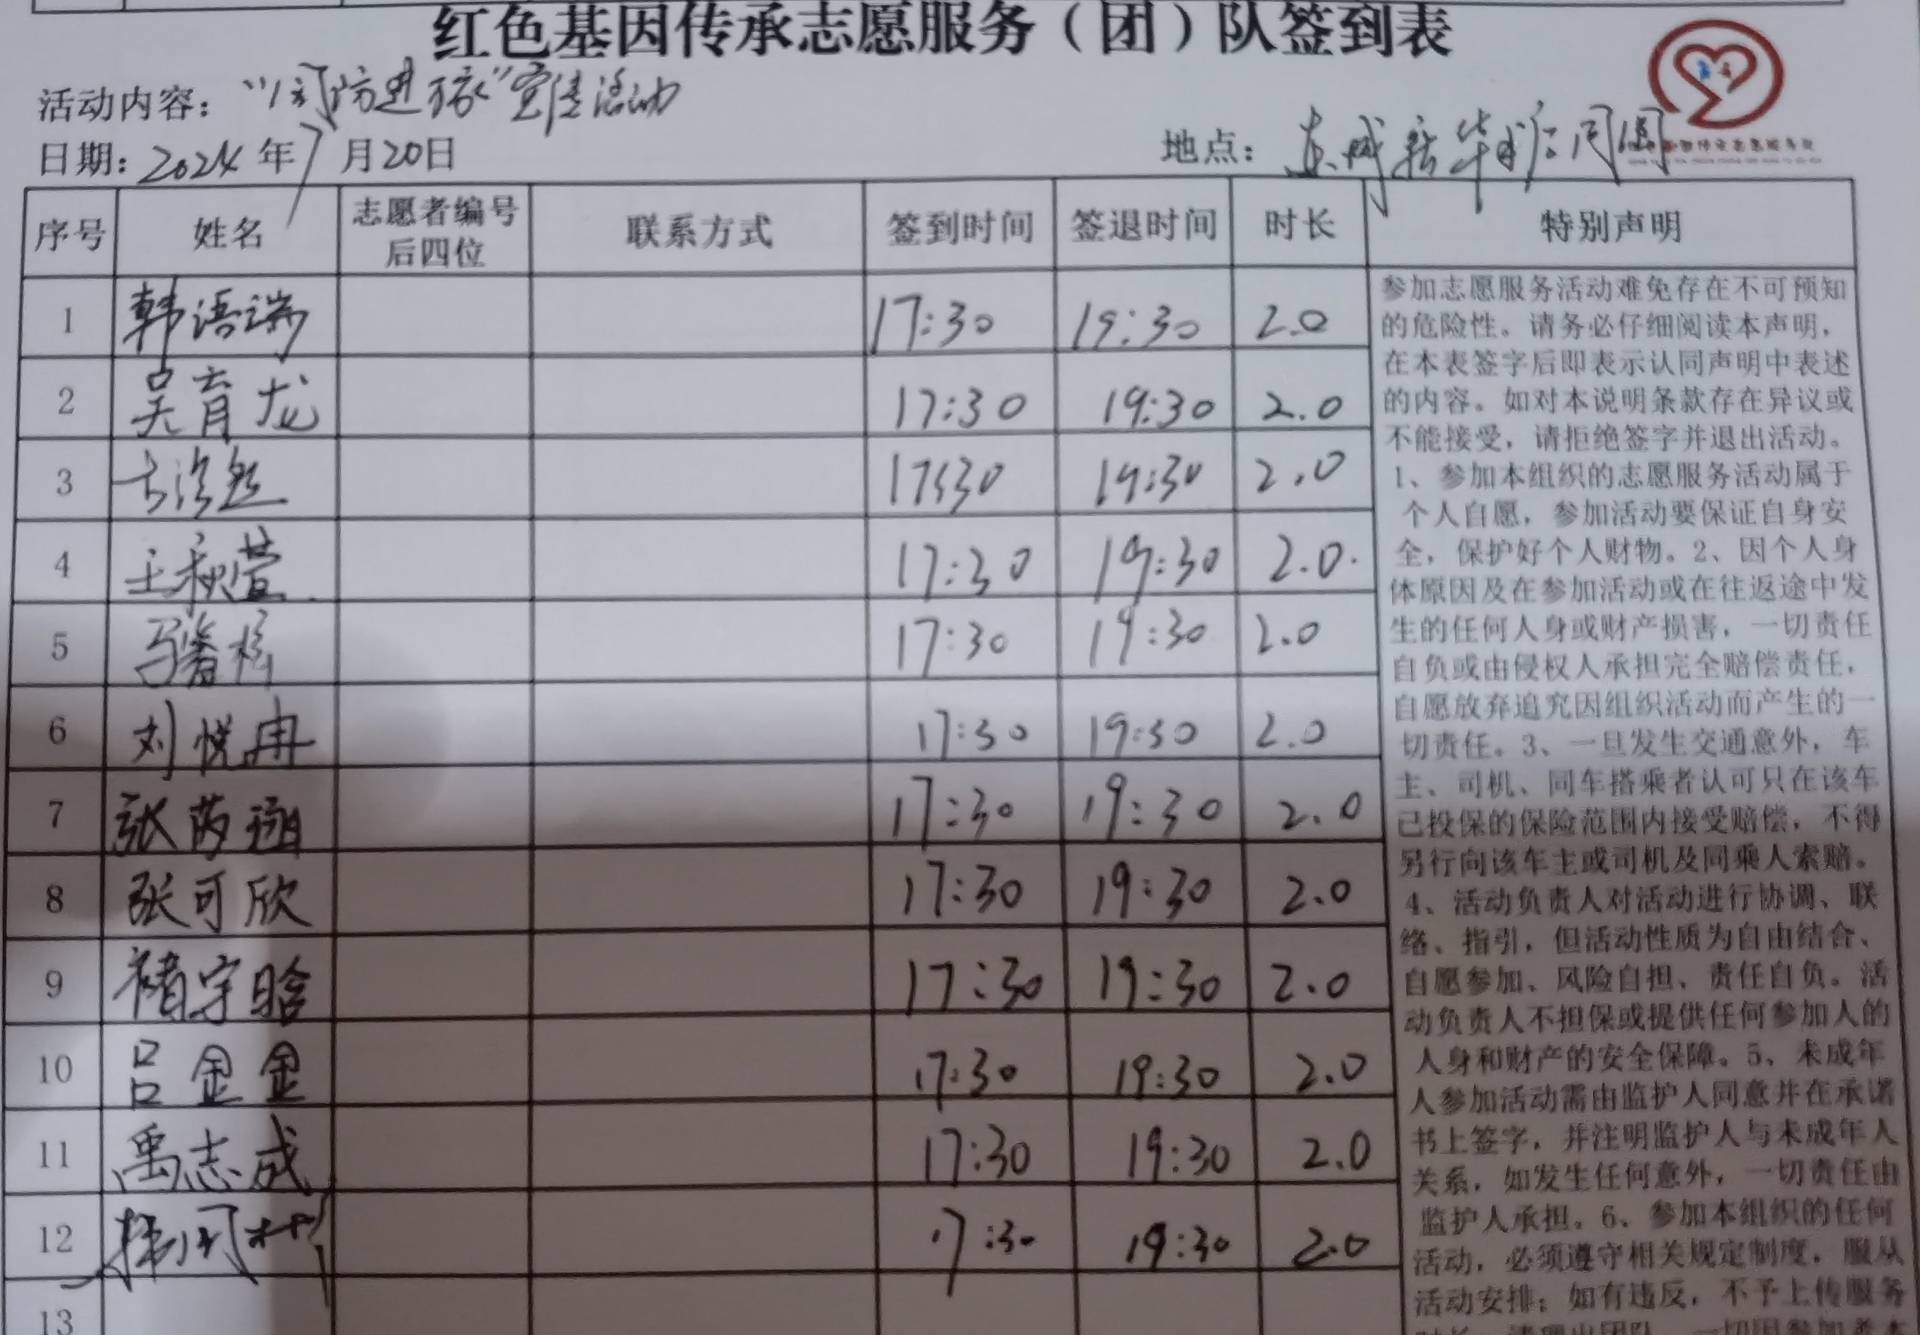 红色基因传承志愿服务（团）队签到表
活动内容：“消防进万家”宣传活动
日期：2024年7月20日
地点：东城新华书店门口
序号 姓名 志愿者编号后四位 联系方式 签到时间 签退时间 时长 特别声明
1 韩语端 17:30 19:30 2.0
2 吴育龙 17:30 19:30 2.0
3 17:30 19:30 2.0
4 王秋萱 17:30 19:30 2.0
5 17:30 19:30 2.0
6 刘悦冉 17:30 19:30 2.0
7 张 17:30 19:30 2.0
8 张可欣 17:30 19:30 2.0
9 褚宇晗 17:30 19:30 2.0
10 吕金金 17:30 19:30 2.0
11 禹志成 17:30 19:30 2.0
12 17:30 19:30 2.0
13
参加志愿服务活动难免存在不可预知
的危险性。请务必仔细阅读本声明，
在本表签字后即表示认同声明中表述
的内容。如对本说明条款存在异议或
不能接受，请拒绝签字并退出活动。
1、参加本组织的志愿服务活动属于
个人自愿，参加活动要保证自身安
全，保护好个人财物。2、因个人身
体原因及在参加活动或在往返途中发
生的任何人身或财产损害，一切责任
自负或由侵权人承担完全赔偿责任，
自愿放弃追究因组织活动而产生的一
切责任。3、一旦发生交通意外，车
主、司机、同车搭乘者认可只在该车
已投保的保险范围内接受赔偿，不得
另行向该车主或司机及同乘人索赔。
4、活动负责人对活动进行协调、联
络、指引，但活动性质为自由结合、
自愿参加、风险自担、责任自负。活
动负责人不担保或提供任何参加人的
人身和财产的安全保障。5、未成年
人参加活动需由监护人同意并在承诺
书上签字，并注明监护人与未成年人
关系，如发生任何意外，一切责任由
监护人承担。6、参加本组织的任何
活动，必须遵守相关规定制度，服从
活动安排；如有违反，不予上传服务